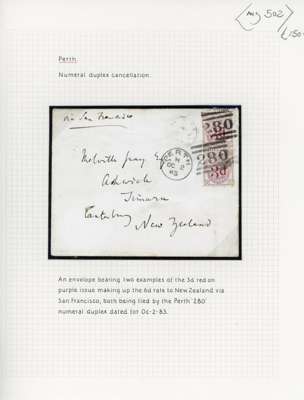 mg 502
150-
Perth.
Numeral duplex cancellation.
via San Francisco
280
PERTH
N
OC 2
83
280
3d
Melville Gray Esq
Ashwick
Timaru
Canterbury
New Zealand
An envelope bearing two examples of the 3d red on
purple issue making up the 6d rate to New Zealand via
San Francisco, both being tied by the Perth '280'
numeral duplex dated for Oc-2-83.